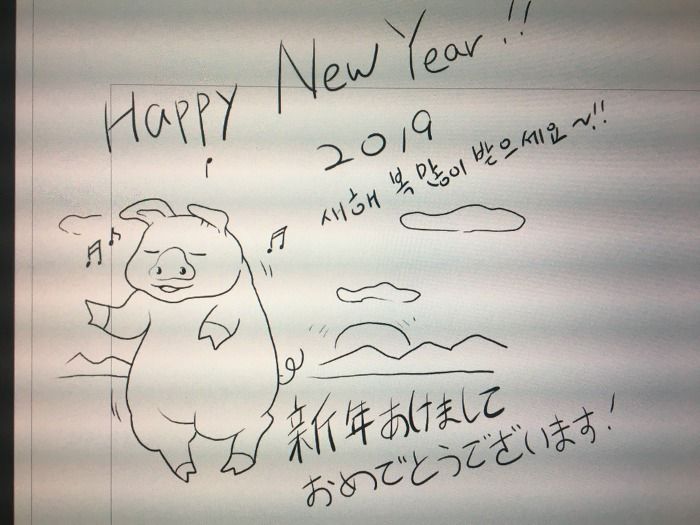 Happy New Year!!
2019
새해 복 많이 받으세요~!!
新年あけまして
おめでとうございます!